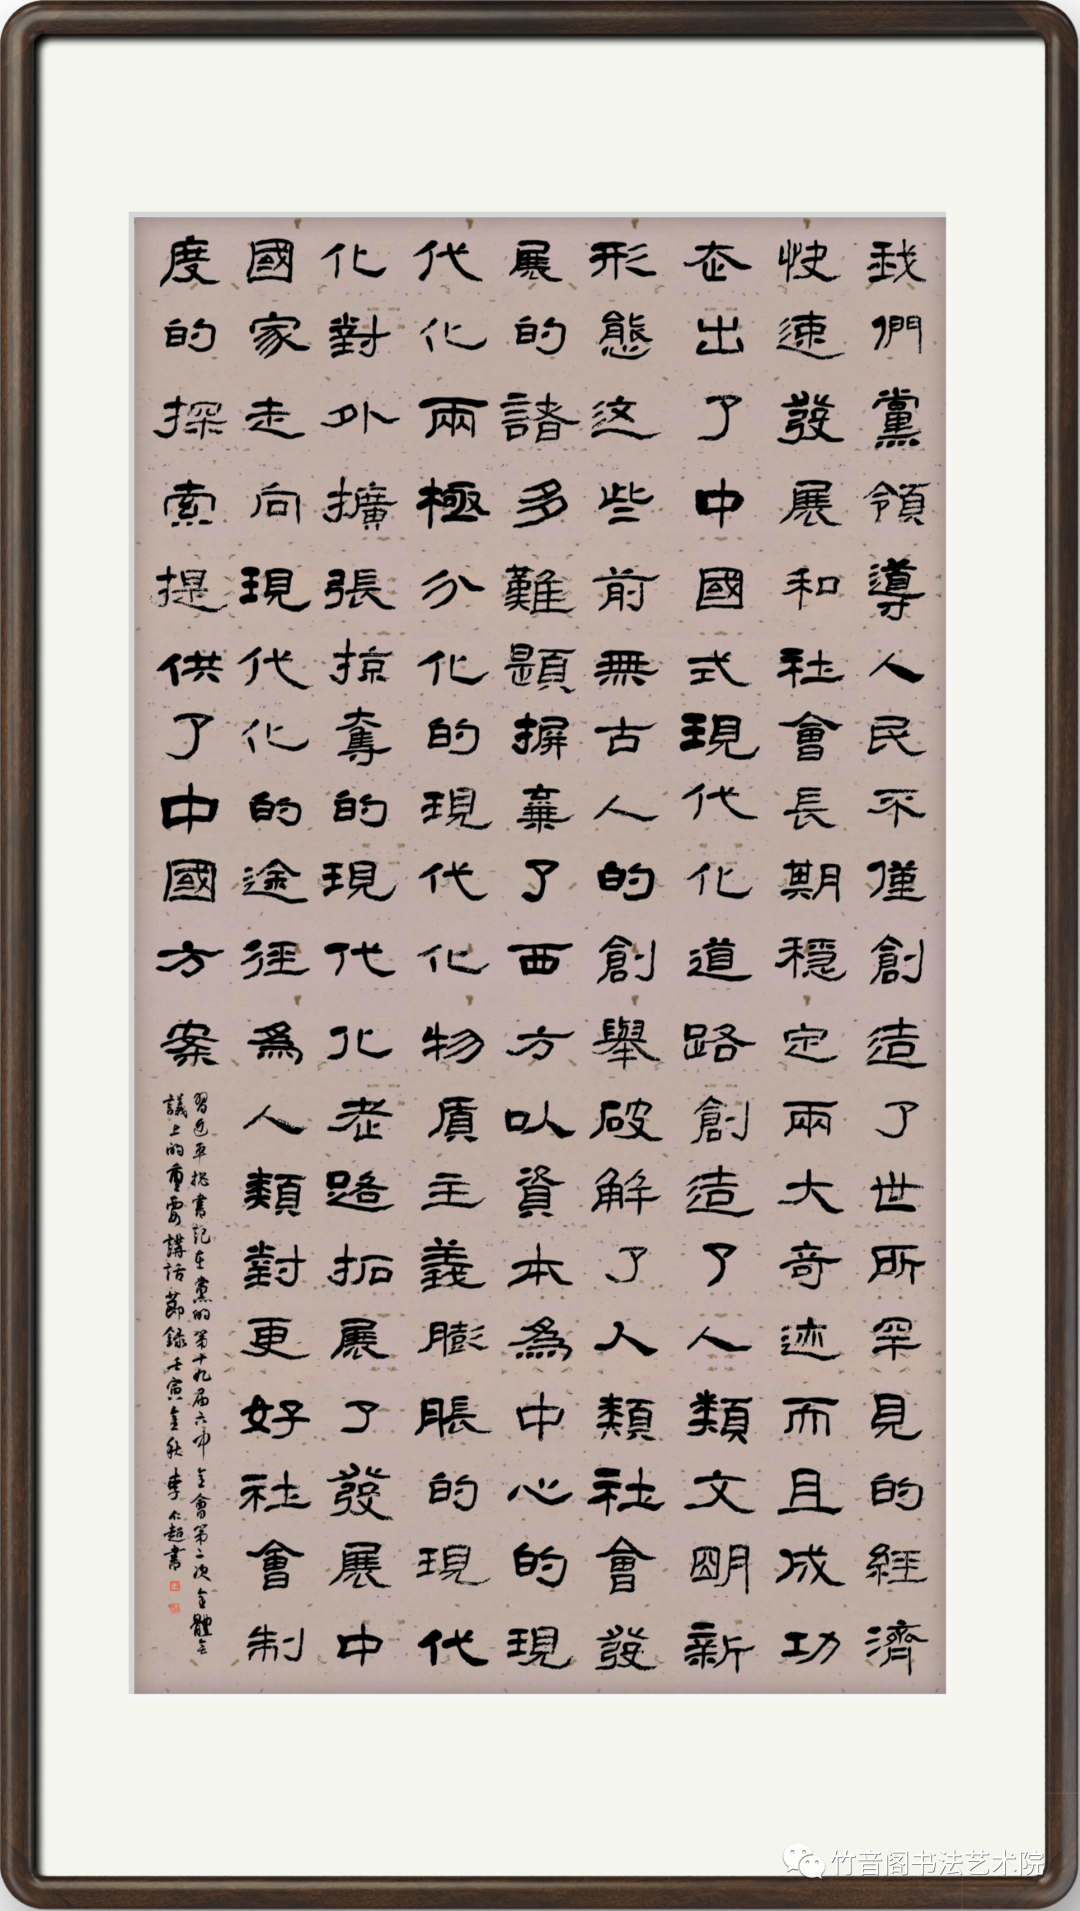 我們黨領導人民不僅創造了世所罕見的經濟
快速發展和社會長期穩定兩大奇迹而且成功
走出了中國式現代化道路創造了人類文明新
形態這些前無古人的創舉破解了人類社會發
展的諸多難題摒棄了西方以資本為中心的現
代化兩極分化的現代化物質主義膨脹的現代
化對外擴張掠奪的現代化老路拓展了發展中
國家走向現代化的途徑為人類對更好社會制
度的探索提供了中國方案
習近平總書記在黨的第十九届六中全會第二次全體會
議上的重要講話節錄壬寅金秋李仁超書
竹音阁书法艺术院